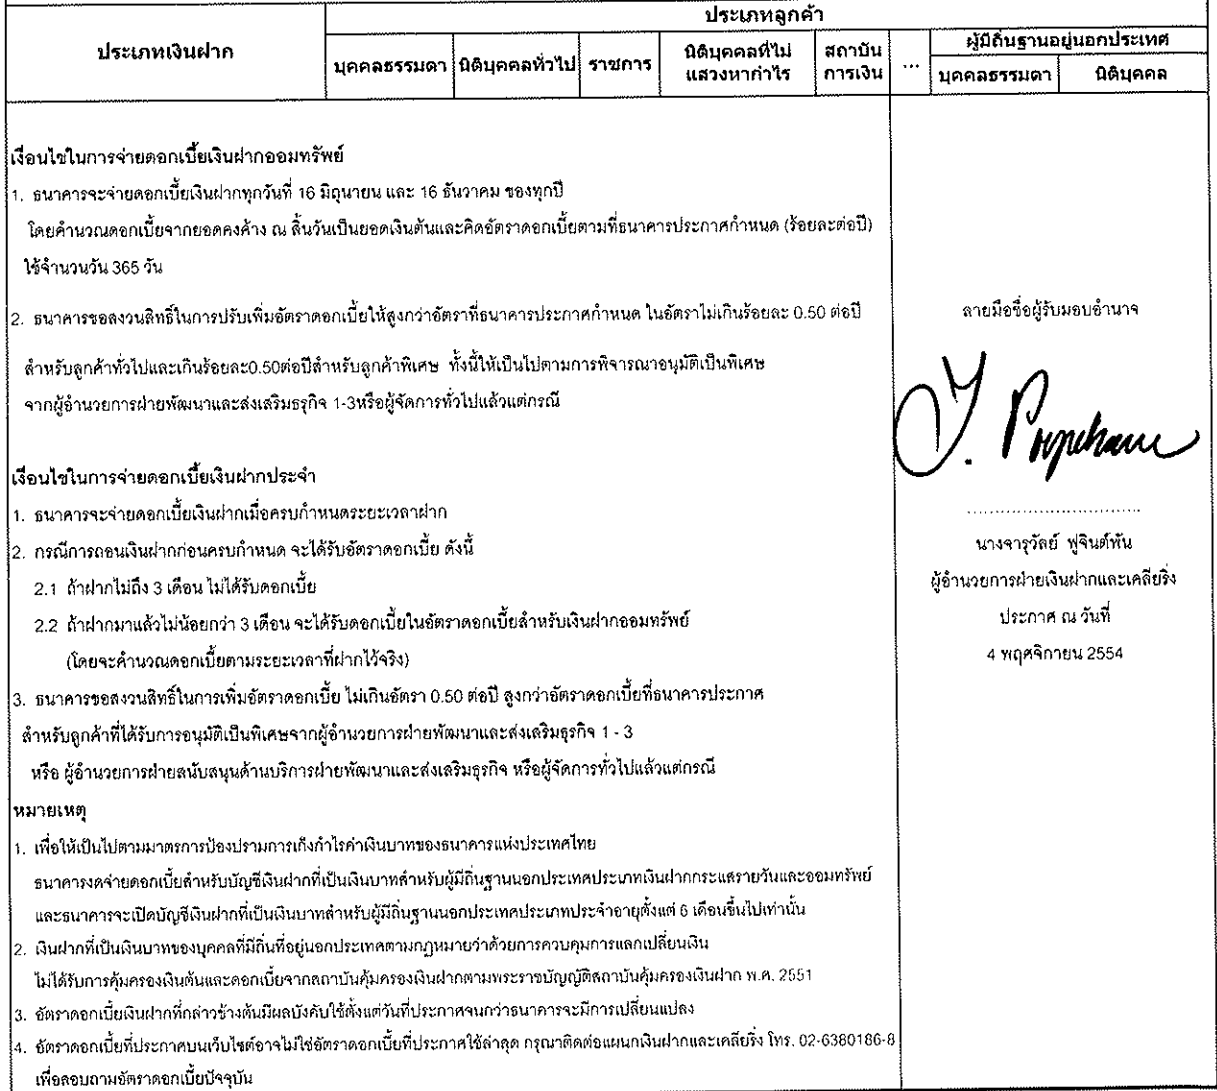 ประเภทลูกค้า
ประเภทเงินฝาก
บุคคลธรรมดา นิติบุคคลทั่วไป ราชการ นิติบุคคลที่ไม่แสวงหากำไร สถาบันการเงิน ... ผู้มีถิ่นฐานอยู่นอกประเทศ
บุคคลธรรมดา นิติบุคคล
เงื่อนไขในการจ่ายดอกเบี้ยเงินฝากออมทรัพย์
1. ธนาคารจะจ่ายดอกเบี้ยเงินฝากทุกวันที่ 16 มิถุนายน และ 16 ธันวาคม ของทุกปี
โดยคำนวณดอกเบี้ยจากยอดคงค้าง ณ สิ้นวันเป็นยอดเงินต้นและคิดอัตราดอกเบี้ยตามที่ธนาคารประกาศกำหนด (ร้อยละต่อปี)
ใช้จำนวนวัน 365 วัน
2. ธนาคารขอสงวนสิทธิ์ในการปรับเพิ่มอัตราดอกเบี้ยให้สูงกว่าอัตราที่ธนาคารประกาศกำหนด ในอัตราไม่เกินร้อยละ 0.50 ต่อปี
สำหรับลูกค้าทั่วไปและเกินร้อยละ0.50ต่อปีสำหรับลูกค้าพิเศษ ทั้งนี้ให้เป็นไปตามการพิจารณาอนุมัติเป็นพิเศษ
จากผู้อำนวยการฝ่ายพัฒนาและส่งเสริมธรุกิจ 1-3หรือผู้จัดการทั่วไปแล้วแต่กรณี
เงื่อนไขในการจ่ายดอกเบี้ยเงินฝากประจำ
1. ธนาคารจะจ่ายดอกเบี้ยเงินฝากเมื่อครบกำหนดระยะเวลาฝาก
2. กรณีการถอนเงินฝากก่อนครบกำหนด จะได้รับอัตราดอกเบี้ย ดังนี้
2.1 ถ้าฝากไม่ถึง 3 เดือน ไม่ได้รับดอกเบี้ย
2.2 ถ้าฝากมาแล้วไม่น้อยกว่า 3 เดือน จะได้รับดอกเบี้ยในอัตราดอกเบี้ยสำหรับเงินฝากออมทรัพย์
(โดยจะคำนวณดอกเบี้ยตามระยะเวลาที่ฝากไว้จริง)
3. ธนาคารขอสงวนสิทธิ์ในการเพิ่มอัตราดอกเบี้ย ไม่เกินอัตรา 0.50 ต่อปี สูงกว่าอัตราดอกเบี้ยที่ธนาคารประกาศ
สำหรับลูกค้าที่ได้รับการอนุมัติเป็นพิเศษจากผู้อำนวยการฝ่ายพัฒนาและส่งเสริมธุรกิจ 1 - 3
หรือ ผู้อำนวยการฝ่ายสนับสนุนด้านบริการฝ่ายพัฒนาและส่งเสริมธุรกิจ หรือผู้จัดการทั่วไปแล้วแต่กรณี
หมายเหตุ
1. เพื่อให้เป็นไปตามมาตรการป้องปรามการเก็งกำไรค่าเงินบาทของธนาคารแห่งประเทศไทย
ธนาคารงดจ่ายดอกเบี้ยสำหรับบัญชีเงินฝากที่เป็นเงินบาทสำหรับผู้มีถิ่นฐานนอกประเทศประเภทเงินฝากกระแสรายวันและออมทรัพย์
และธนาคารจะเปิดบัญชีเงินฝากที่เป็นเงินบาทสำหรับผู้มีถิ่นฐานนอกประเทศประเภทประจำอายุตั้งแต่ 6 เดือนขึ้นไปเท่านั้น
2. เงินฝากที่เป็นเงินบาทของบุคคลที่มีถิ่นที่อยู่นอกประเทศตามกฎหมายว่าด้วยการควบคุมการแลกเปลี่ยนเงิน
ไม่ได้รับการคุ้มครองเงินต้นและดอกเบี้ยจากสถาบันคุ้มครองเงินฝากตามพระราชบัญญัติสถาบันคุ้มครองเงินฝาก พ.ศ. 2551
3. อัตราดอกเบี้ยเงินฝากที่กล่าวข้างต้นมีผลบังคับใช้ตั้งแต่วันที่ประกาศจนกว่าธนาคารจะมีการเปลี่ยนแปลง
4. อัตราดอกเบี้ยที่ประกาศบนเว็บไซต์อาจไม่ใช่อัตราดอกเบี้ยที่ประกาศใช้ล่าสุด กรุณาติดต่อแผนกเงินฝากและเคลียริ่ง โทร. 02-6380186-8
เพื่อสอบถามอัตราดอกเบี้ยปัจจุบัน
ลายมือชื่อผู้รับมอบอำนาจ
นางจารุวัลย์ ฟูจินต์พัน
ผู้อำนวยการฝ่ายเงินฝากและเคลียริ่ง
ประกาศ ณ วันที่
4 พฤศจิกายน 2554